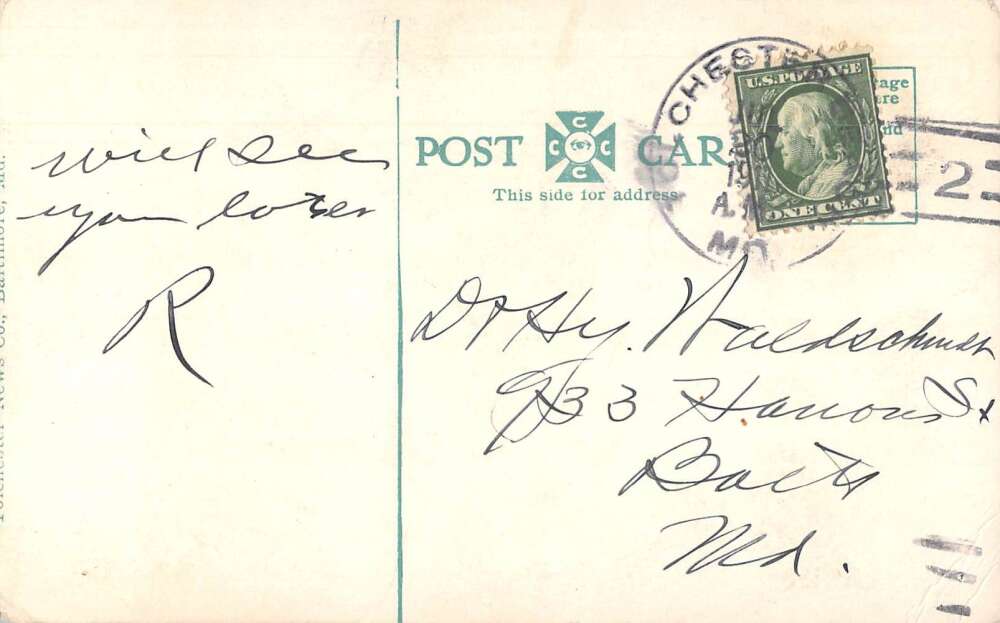 will see
you later
R
Tolchester News Co., Baltimore, Md.
POST CARD
C C C C
This side for address.
CHESTE
A.
MD.
U.S. POSTAGE
ONE CENT
2
Dr Hy. Waldschmidt
933 Hanover St
Balto
Md.